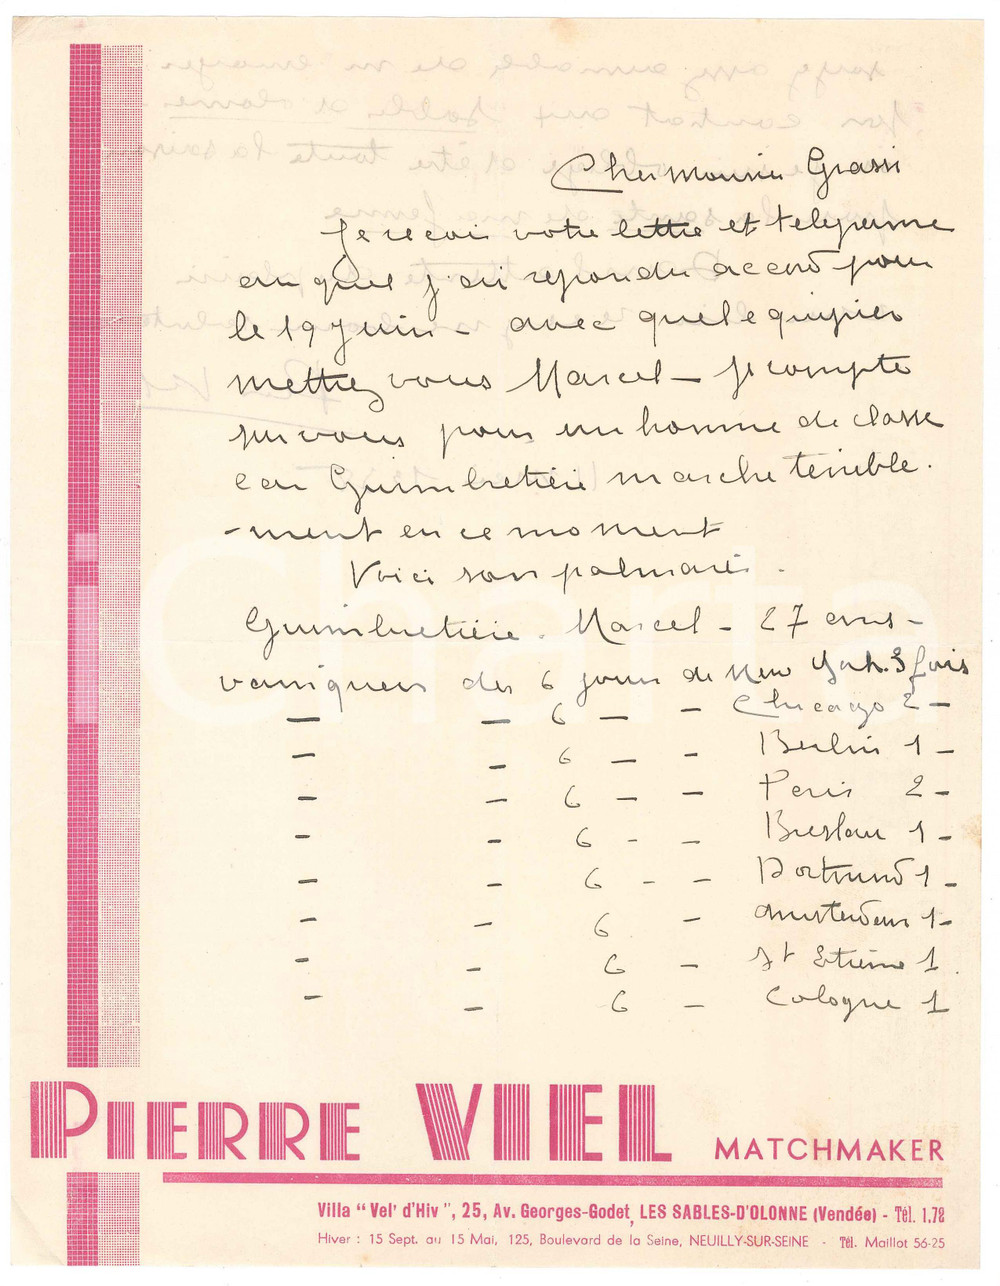 Cher Monsieur Grassi
Je recois votre lettre et telegrame
au quel j'ai repondu accord pour
le 19 Juin - avec quel equipier
mettrez vous Marcel - Je compte
sur vous pour un homme de classe
car Guimbretière marche terrible.
-ment en ce moment
Voici son palmarès.
Guimbretière. Marcel - 27 ans -
vainqueur des 6 jours de New York. 3 fois
— — 6 — — Chicago 2 —
— — 6 — — Berlin 1 —
— — 6 — — Paris 2 —
— — 6 - — Breslau 1 —
— — 6 - — Dortmund 1 —
— — 6 — Amsterdam 1 -
— — 6 — St Etienne 1
— — 6 — Cologne 1
PIERRE VIEL MATCHMAKER
Villa "Vel' d'Hiv", 25, Av. Georges-Godet, LES SABLES-D'OLONNE (Vendée) - Tél. 1.72
Hiver : 15 Sept. au 15 Mai, 125, Boulevard de la Seine, NEUILLY-SUR-SEINE - Tél. Maillot 56-25
Charta